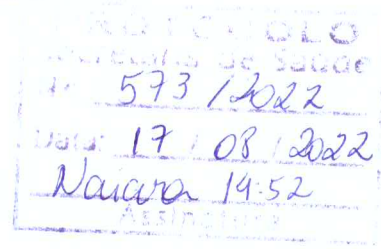 PROTOCOLO
Secretaria de Saúde
Nº 573 / 2022
Data: 17 / 08 / 2022
Naiara 14:52
Assinatura